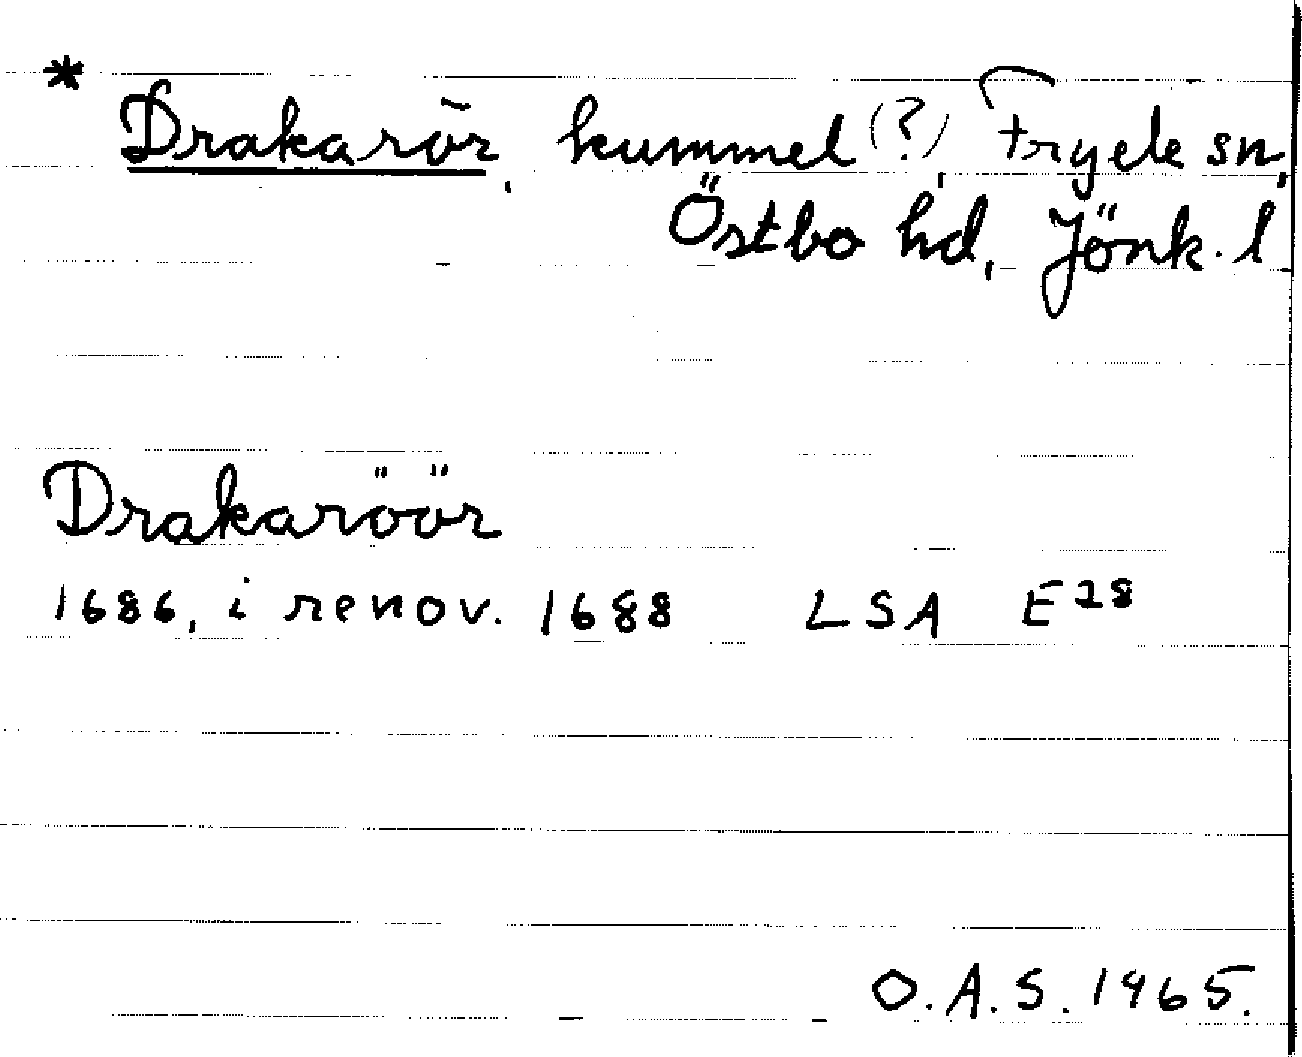 * Drakarör, kummel (?), Fryele sn,
Östbo hd, Jönk. l
Drakaröör
1686, i renov. 1688 LSA E28
O.A.S. 1965.